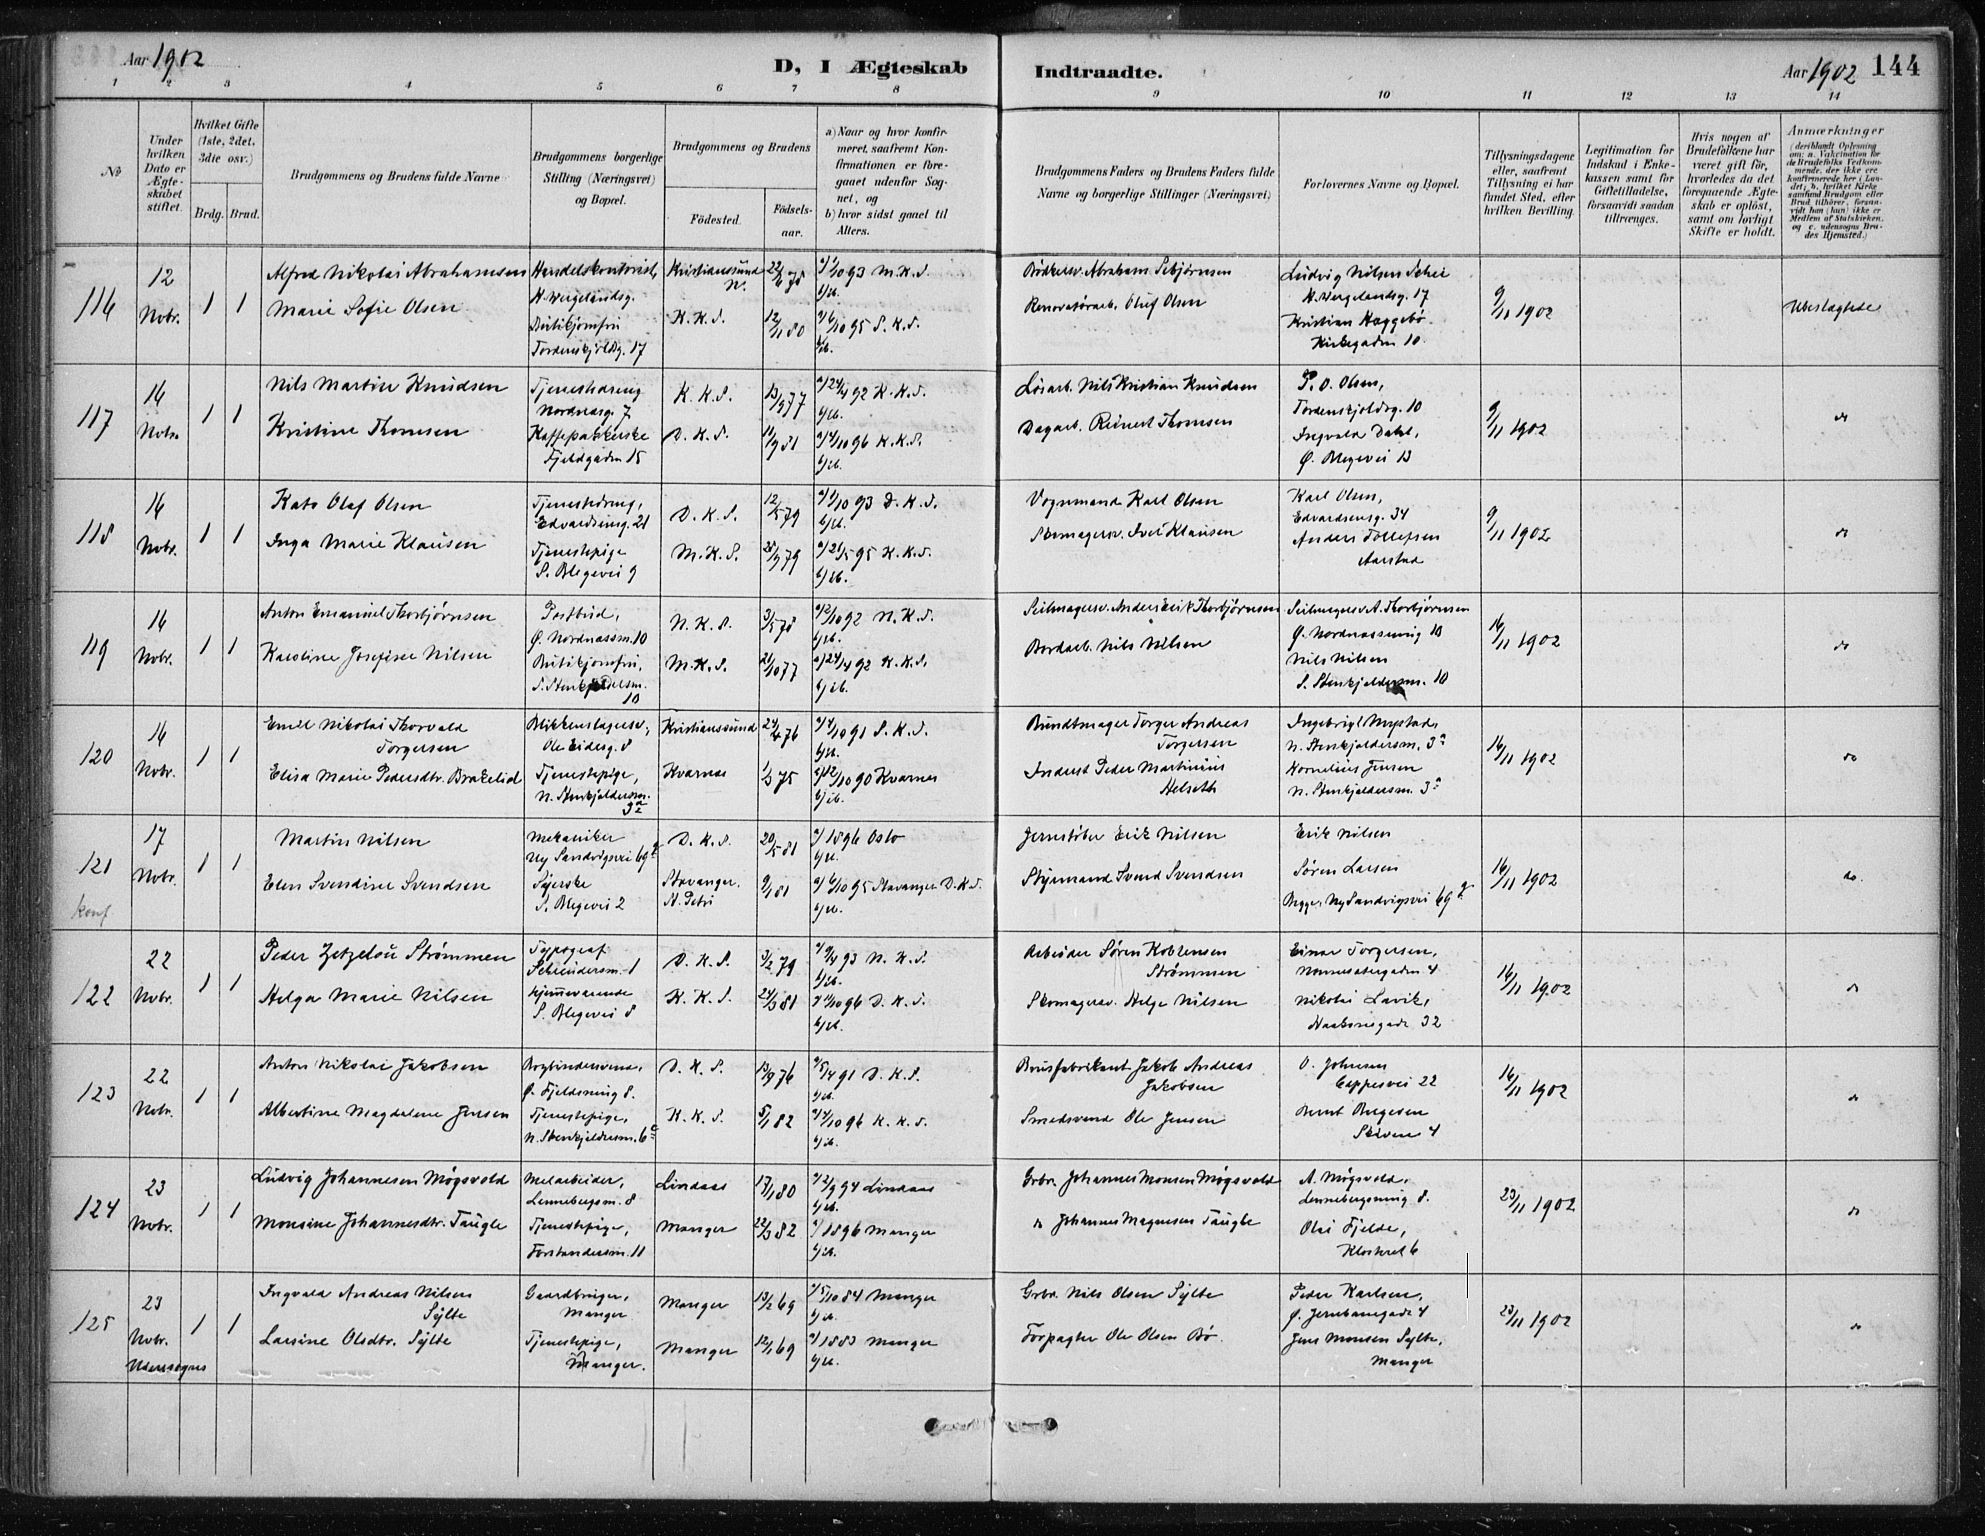 Aar 1902
D, I Ægteskab
Indtraadte.
Aar 1902 144
1 2 3 4 5 6 7 8 9 10 11 12 13 14
No
Under hvilken Dato er Ægteskabet stiftet.
Hvilket Gifte (1ste, 2det, 3die osv.)
Brdg. Brud.
Brudgommens og Brudens fulde Navne
Brudgommens borgerlige Stilling (Næringsvei) og Bopæl.
Brudgommens og Brudens
Födested.
Födsels-aar.
a) Naar og hvor konfirmeret, saafremt Konfirmationen er foregaaet udenfor Sognet, og
b) hvor sidst gaaet til Alters.
Brudgommens Faders og Brudens Faders fulde Navne og borgerlige Stillinger (Næringsvei)
Forlovernes Navne og Bopæl.
Tillysningsdagene eller, saafremt Tillysning ei har fundet Sted, efter hvilken Bevilling.
Legitimation for Indskud i Enkekassen samt for Giftetilladelse, forsaavidt saadan tiltrænges.
Hvis nogen af Brudefolkene har været gift för, hvorledes da det foregaaende Ægteskab er oplöst, samt om lovligt Skifte er holdt.
Anmærkninger (deriblandt Oplysning om: a. Vakcination for de Brudefolks Vedkommende, der ikke ere konfirmerede her i Landet; b. hvilket Kirkesamfund Brudgom eller Brud tilhörer, forsaavidt han (hun) ikke er Medlem af Statskirken, og c. udensogns Brudes Hjemsted.)
116
12 Novbr.
1 1
Alfred Nikolai Abrahamsen
Marie Sofie Olsen
Handelskontorist,
H. Wergelandsg.
Butikjomfru
Tordenskjoldsg. 17
Kristianssund N.
K. K. S.
22/6 78
12/11 80
a) 1/10 93 M.K.S.
b) ib.
a) 6/10 95 S. K. S.
b) ib.
Bödkersv. Abraham Sebjørnsen
Renovatörarb. Oluf Olsen
Ludvig Nilsen Schei
H. Wergelandsg. 17
Kristian Haggebö
Kirkegaden 10.
9/11 1902
Ubeslægtede
117
16 Novbr
1 1
Nils Martin Knudsen
Kristine Thomsen
Tjenestedreng
Nordnæsg. 7
Kaffepakkerske
Fjeldgaden 15
K. K. S.
D. K. S.
13/9 77
11/9 81
a) 24/4 92 K. K. S.
b) ib.
a) 4/10 96 K. K. S.
b) ib.
Løsarb. Nils Kristian Knudsen
Dagarb. Reinert Thomsen
P. O. Olsen,
Tordenskjoldsg. 10
Ingvald Dahl,
Ø. Blegevei 13
9/11 1902
do
118
16 Novbr.
1 1
Kato Olaf Olsen
Inga Marie Klausen
Tjenestedreng,
Edvardseng. 21
Tjenestepige
S. Blegevei 9
D. K. S.
M. K. S.
12/5 79
28/9 79
a) 1/10 93 D. K. S.
b) ib.
a) 26/5 95 K. K. S.
b) ib.
Vognmand Karl Olsen
Skomagersv. Iver Klausen
Karl Olsen,
Edvardsensg. 34
Anders Tollefsen
Aarstad
9/11 1902
do
119
16 Novbr.
1 1
Anton Emanuel Thorbjørnsen
Karoline Josefine Nilsen
Postbud,
Ø. Nordnæssm. 10
Butikjomfru,
S. Stenkjeldersm. 10
N. K. S.
M. K. S.
3/5 78
21/10 77
a) 2/10 92 N. K. S.
b) ib.
a) 24/4 92 K. K. S.
b) ib.
Seilmagersv. Anders Erik Thorbjørnsen
Bordarb. Nils Nilsen
Seilmagersv. A. Thorbjørnsen
Ø. Nordnæssmug 10
Nils Nilsen
S. Stenkjeldersm. 10
16/11 1902
do
120
16 Novbr.
1 1
Emil Nikolai Thorvald Torgersen
Elisa Marie Pedersdtr. Brakelid
Blikkenslagersv.,
Ole Eidesg. 8
Tjenestepige,
N. Stenkjeldersm. 3a
Kristianssund
Kvarnes
24/4 76
1/3 75
a) 4/10 91 S. K. S.
b) ib.
a) 12/10 90 Kvarnes
b) ib.
Bundtmager Torger Andreas Torgersen
Inderst Peder Martinius Helseth
Ingebrigt Mypstad,
N. Stenkjeldersm. 3a
Kornelius Jensen
N. Stenkjeldersm. 3a
16/11 1902
do
121
konf
17 Novbr.
1 1
Martin Nilsen
Elen Svendine Svendsen
Mekaniker
Ny Sandvigsvei 69
Syerske
S. Blegevei 2
D. K. S.
Stavanger.
St. Petri
20/5 81
9/1 81
a) 1896 Oslo
b) ib.
a) 6/10 95 Stavanger D. K. S.
b) ib.
Jernstöber Erik Nilsen
Styrmand Svend Svendsen
Erik Nilsen
Søren Larsen
Begge, Ny Sandvigsvei 69
16/11 1902
do.
122
22 Novbr.
1 1
Peder Zetzelou Strømmen
Helga Marie Nilsen
Typograf
Schreudersm. 1
Hjemmeværende
S. Blegevei 8
D. K. S.
K. K. S.
3/2 79
24/3 81
a) 9/4 93 N. K. S.
b) ib.
a) 4/10 96 D. K. S.
b) ib.
Arbeider Søren Koblensen Strømmen
Skomagersv. Helge Nilsen
Einar Torgersen,
Nonnesætergaden 4
Nikolai Lavik,
32
16/11 1902
do
123
22 Novbr.
1 1
Anton Nikolai Jakobsen
Albertine Magdalene Jensen
Bogbindersvend,
Ø. Fjeldsmug 8.
Tjenestepige,
N. Stenkjeldersm. 6
D. K. S.
K. K. S.
13/9 76
5/1 82
a) 5/4 91 D. K. S.
b) ib.
a) 4/10 96 K. K. S.
b) ib.
Brusfabrikant Jakob Andreas Jakobsen
Smedsvend Ole Jensen
O. Johnsen
Cappesvei 22
Bernt Bergesen
Skiven 4
16/11 1902
do
124
23 Novbr.
1 1
Ludvig Johannesen Møgsvold
Monsine Johannesdtr. Taugle
Melarbeider,
Lennebergsm. 8
Tjenestepige,
Forstandersm. 11
Lindaas
Manger
17/1 80
22/3 82
a) 2/9 94 Lindaas
b) ib.
a) 1896 Manger
b) ib.
Grbr. Johannes Monsen Møgsvold
do Johannes Magnesen Taugle
A. Mögsvold,
Lennebergsmug 8.
Olai Fjelde,
Klosteret 6
23/11 1902
do
125
23 Novbr.
Udensognes
1 1
Ingvald Andreas Nilsen Sylte
Larsine Olsdtr. Sylte
Gaardbruger,
Manger
Tjenestepige,
Manger.
Manger
Manger
13/2 69
12/1 69
a) 5/10 84 Manger
b) ib.
a) 1883 Manger
b) ib.
Grbr. Nils Olsen Sylte
Forpagter Ole Olsen Bø.
Peder Karlsen,
Ø. Jernbanegade 4
Jens Monsen Sylte,
Manger
23/11 1902
do